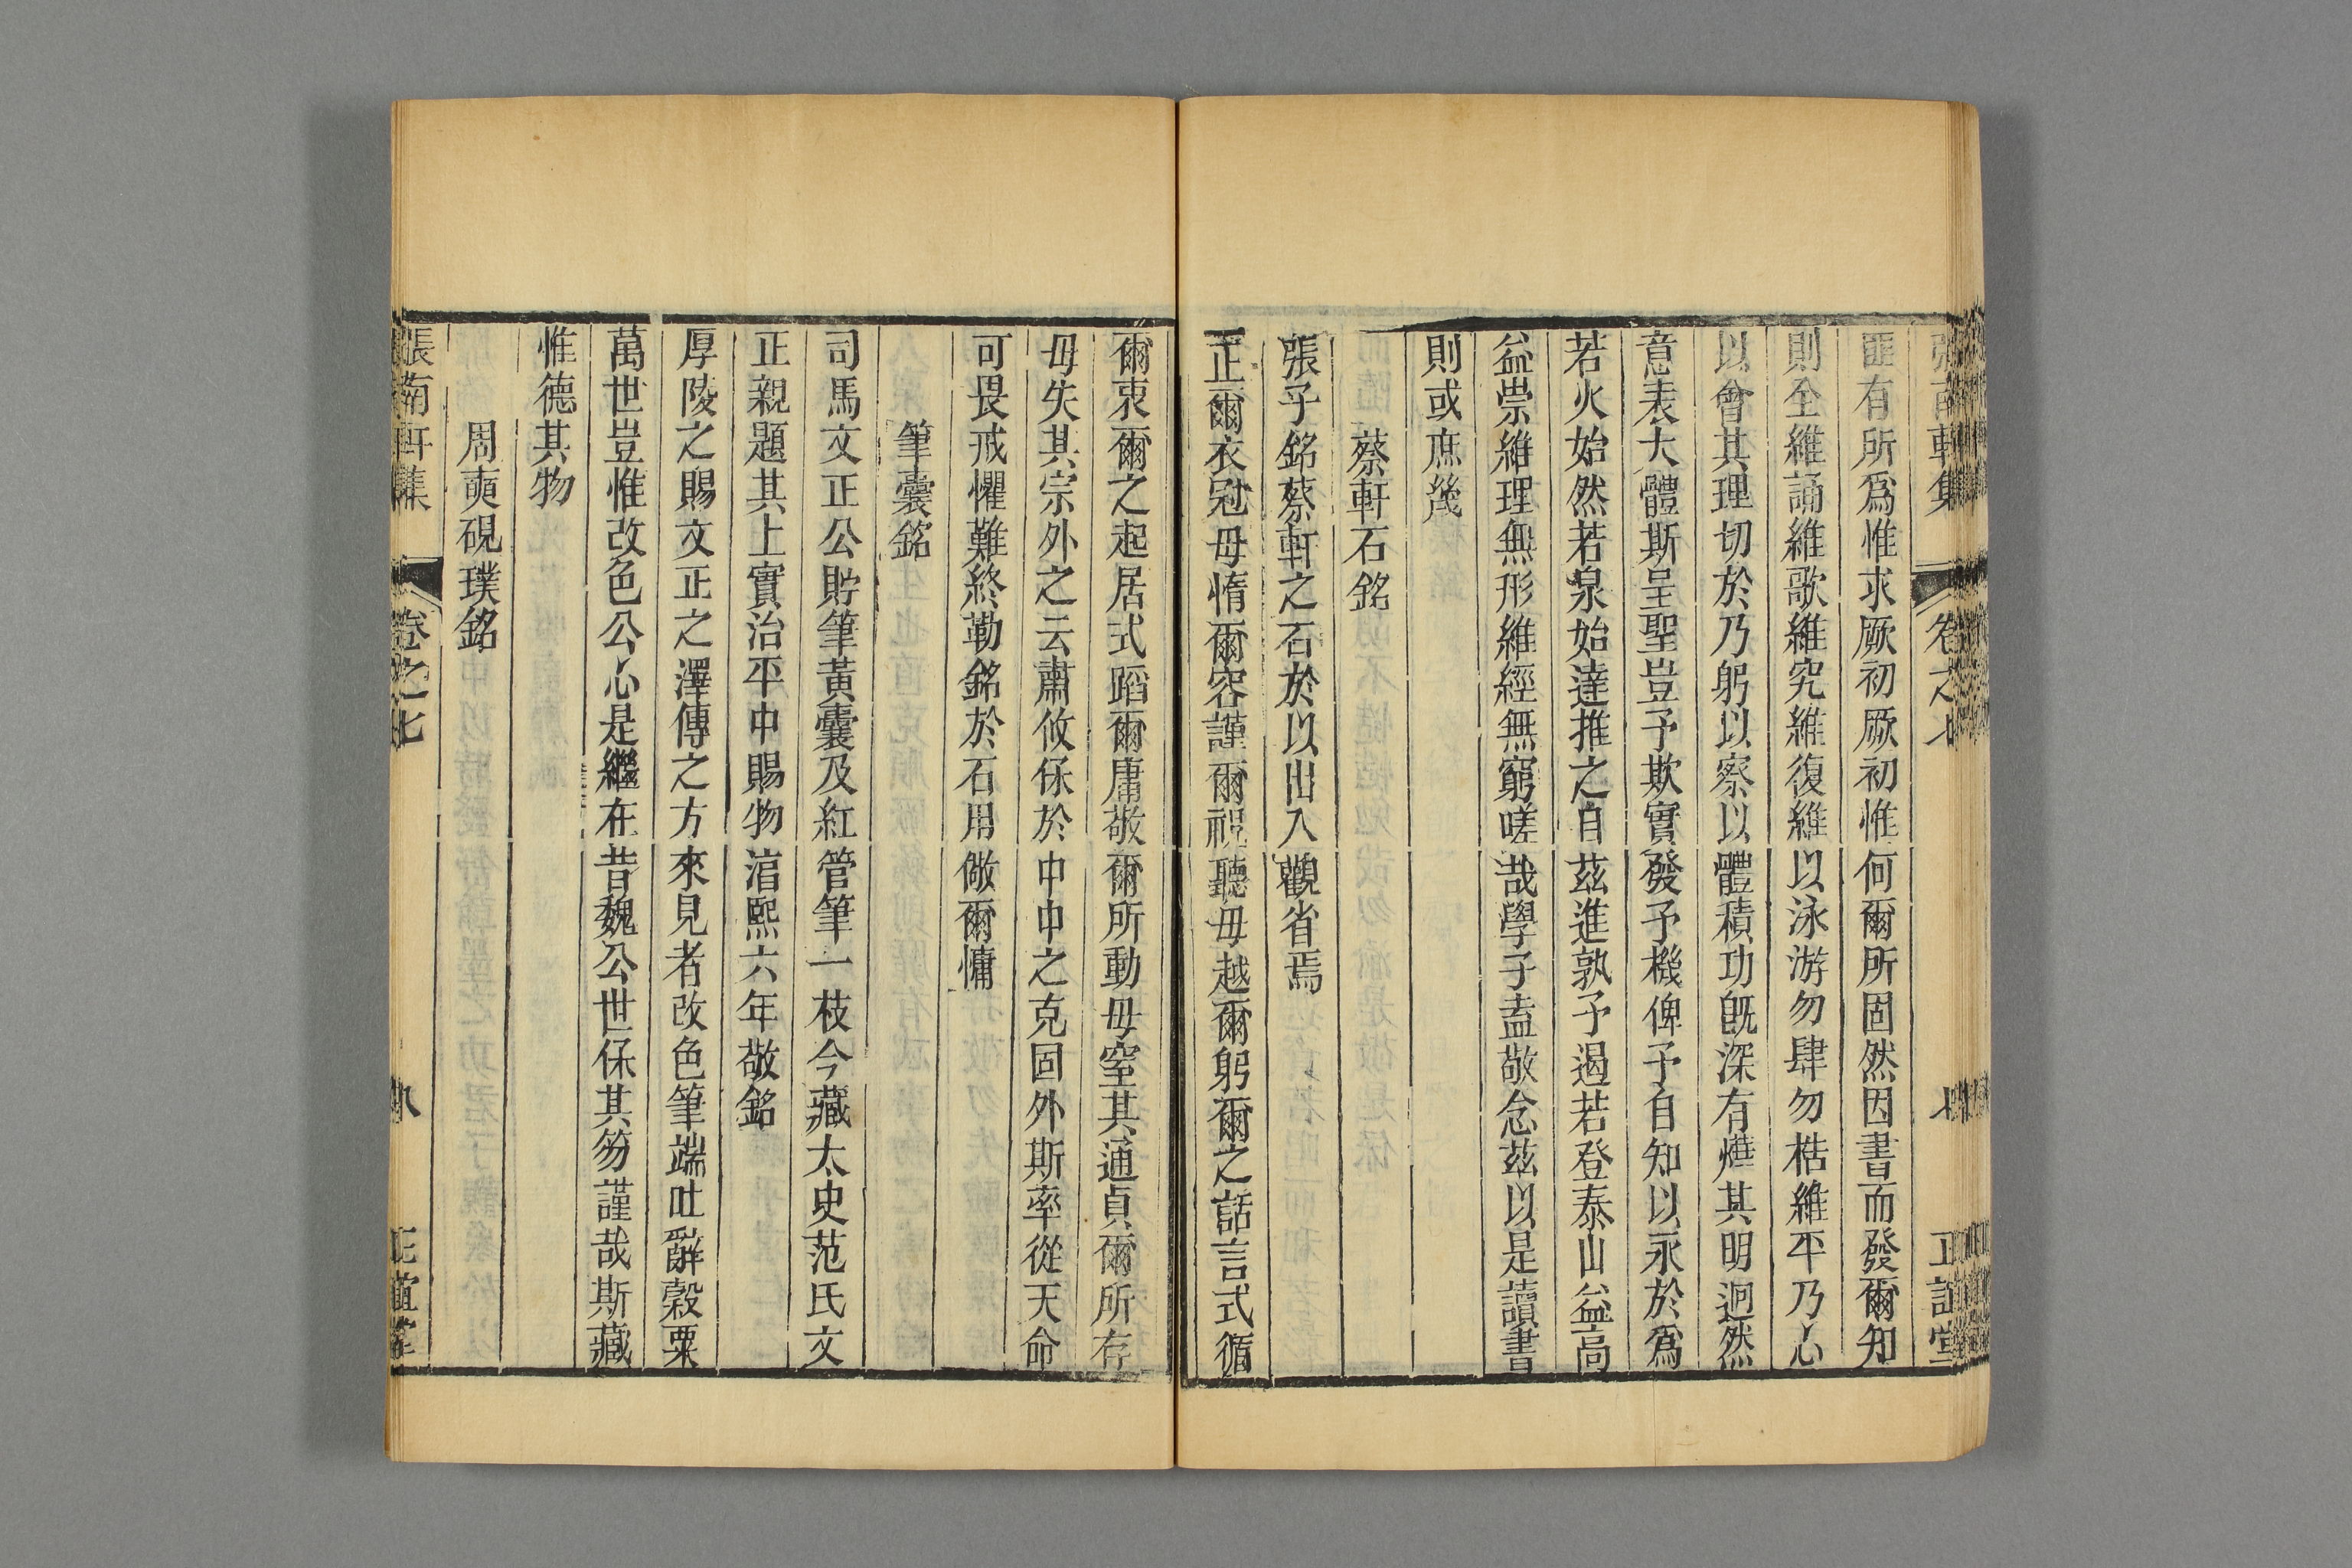 張南軒集 卷之七 七 正誼堂
匪有所爲惟求厥初厥初惟何爾所固然因書而發爾知
則全維誦維歌維究維復維以泳游勿肆勿梏維平乃心
以會其理切於乃躬以察以體積功旣深有燁其明迥然
意表大體斯呈聖豈予欺實發予機俾予自知以永於爲
若火始然若泉始達推之自茲進孰予遏若登泰山益高
益崇維理無形維經無窮嗟哉學子盍敬念茲以是讀書
則或庶幾
蔡軒石銘
張子銘蔡軒之石於以出入觀省焉
正爾衣冠毋惰爾容謹爾視聽毋越爾躬爾之話言式循
爾衷爾之起居式蹈爾庸敬爾所動毋窒其通貞爾所存
毋失其宗外之云肅攸保於中中之克固外斯率從天命
可畏戒懼難終勒銘於石用儆爾慵
筆囊銘
司馬文正公貯筆黃囊及紅管筆一枝今藏太史范氏文
正親題其上實治平中賜物淯熙六年敬銘
厚陵之賜文正之澤傳之方來見者改色筆端吐辭穀粟
萬世豈惟改色公心是繼在昔魏公世保其笏謹哉斯藏
惟德其物
周奭硯璞銘
張南軒集 卷之七 八 正誼堂